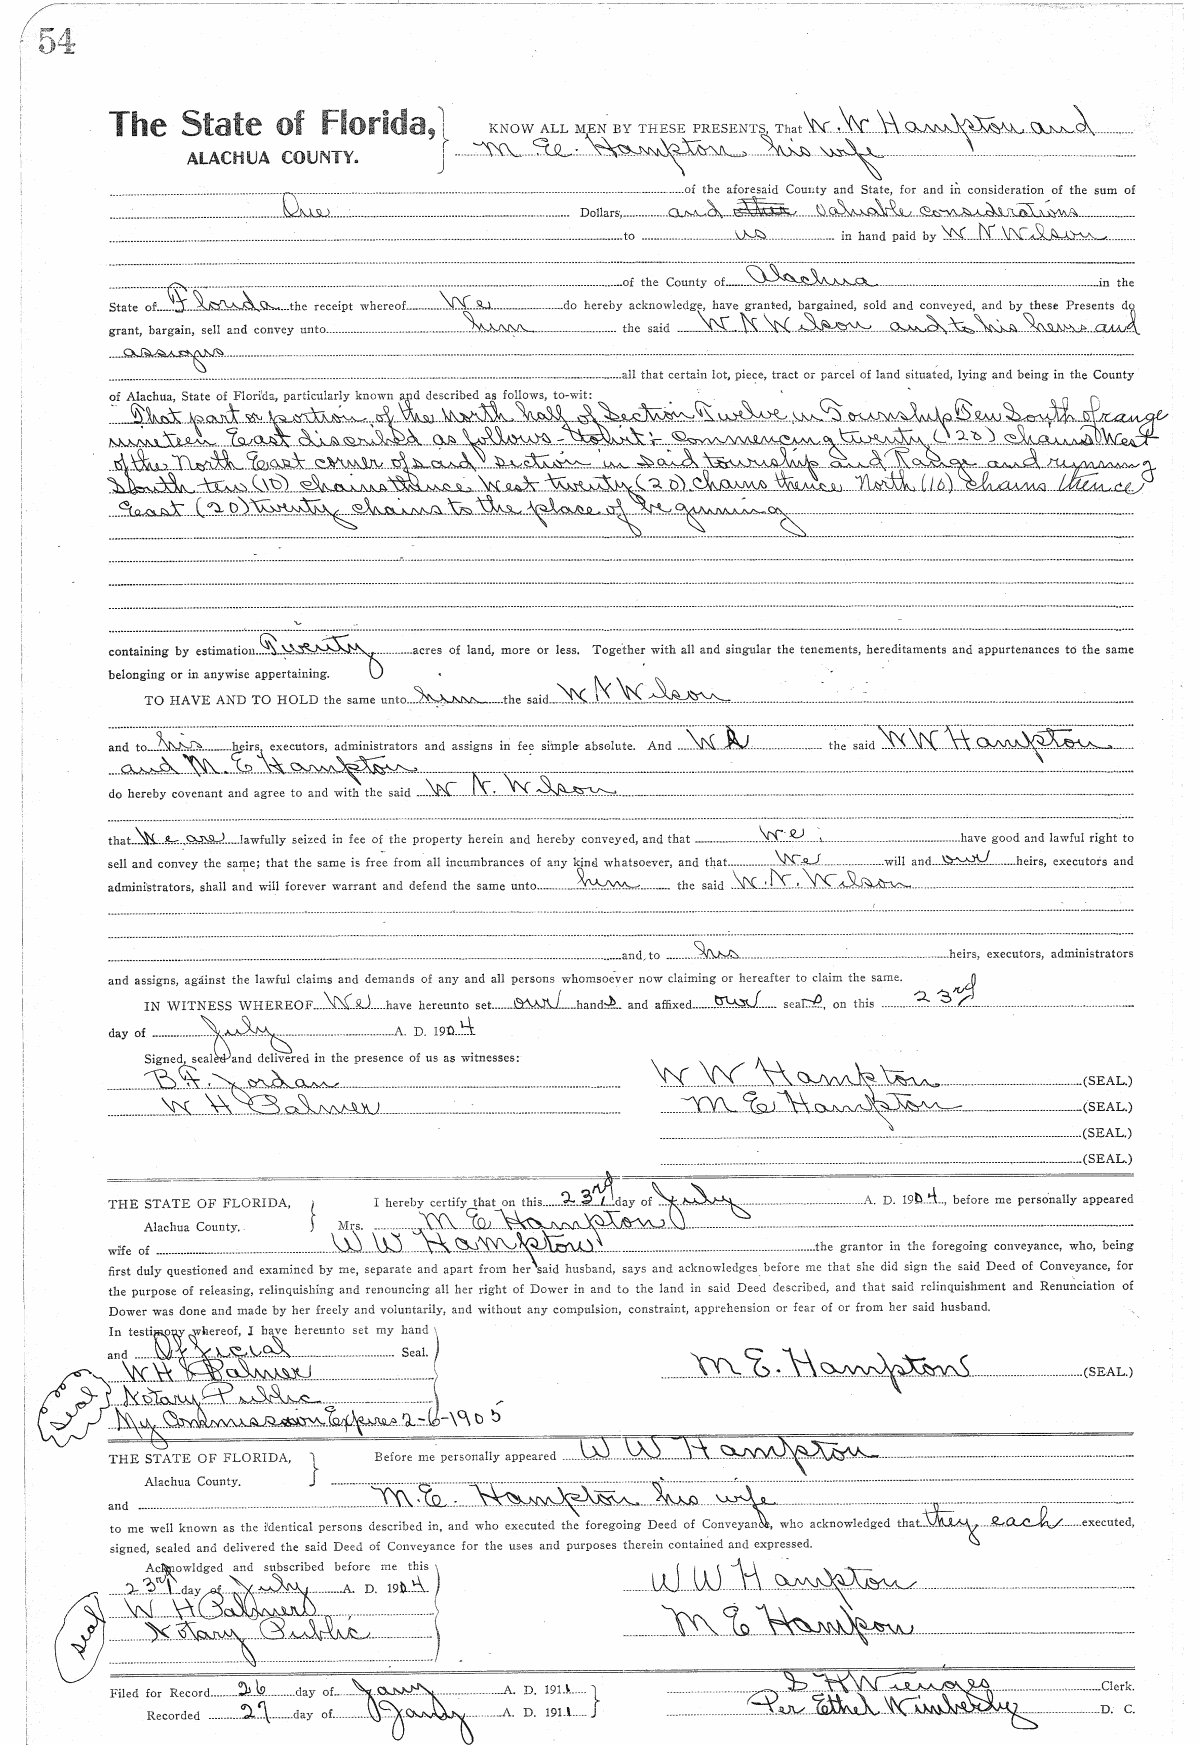 54
The State of Florida, KNOW ALL MEN BY THESE PRESENTS, That W. W Hampton and
ALACHUA COUNTY. M. E. Hampton his wife
of the aforesaid County and State, for and in consideration of the sum of
One Dollars, and other valuable considerations
to us in hand paid by W N Wilson
of the County of Alachua in the
State of Florida the receipt whereof We do hereby acknowledge, have granted, bargained, sold and conveyed, and by these Presents do
grant, bargain, sell and convey unto him the said W. N Wilson and to his heirs and
assigns
all that certain lot, piece, tract or parcel of land situated, lying and being in the County
of Alachua, State of Florida, particularly known and described as follows, to-wit:
That part or portion of the North half of Section Twelve in Township Ten South of range
nineteen East discribed as follows - Towit:- Commencing twenty (20) chains West
of the North East corner of said section in said township and Range and running
South ten (10) chains thence West twenty (20) chains thence North (10) chains thence
East (20) twenty chains to the place of beginning
containing by estimation Twenty acres of land, more or less. Together with all and singular the tenements, hereditaments and appurtenances to the same
belonging or in anywise appertaining.
TO HAVE AND TO HOLD the same unto him the said W N Wilson
and to his heirs, executors, administrators and assigns in fee simple absolute. And We the said W W Hampton
and M. E Hampton
do hereby covenant and agree to and with the said W. N. Wilson
that We are lawfully seized in fee of the property herein and hereby conveyed, and that we have good and lawful right to
sell and convey the same; that the same is free from all incumbrances of any kind whatsoever, and that We will and our heirs, executors and
administrators, shall and will forever warrant and defend the same unto him the said W. N. Wilson
and to his heirs, executors, administrators
and assigns, against the lawful claims and demands of any and all persons whomsoever now claiming or hereafter to claim the same.
IN WITNESS WHEREOF We have hereunto set our hands and affixed our seals, on this 23rd
day of July A. D. 1904
Signed, sealed and delivered in the presence of us as witnesses:
B. F. Jordan W W Hampton (SEAL.)
W H Palmer M E Hampton (SEAL.)
(SEAL.)
(SEAL.)
THE STATE OF FLORIDA, I hereby certify that on this 23rd day of July A. D. 1904, before me personally appeared
Alachua County. Mrs. M E Hampton
wife of W W Hampton the grantor in the foregoing conveyance, who, being
first duly questioned and examined by me, separate and apart from her said husband, says and acknowledges before me that she did sign the said Deed of Conveyance, for
the purpose of releasing, relinquishing and renouncing all her right of Dower in and to the land in said Deed described, and that said relinquishment and Renunciation of
Dower was done and made by her freely and voluntarily, and without any compulsion, constraint, apprehension or fear of or from her said husband.
In testimony whereof, I have hereunto set my hand
and Official Seal.
W H Palmer M E. Hampton (SEAL.)
seal Notary Public
My Commission Expires 2-6-1905
THE STATE OF FLORIDA, Before me personally appeared W W Hampton
Alachua County.
and M. E. Hampton his wife
to me well known as the identical persons described in, and who executed the foregoing Deed of Conveyance, who acknowledged that they each executed,
signed, sealed and delivered the said Deed of Conveyance for the uses and purposes therein contained and expressed.
Acknowldged and subscribed before me this
23rd day of July A. D. 1904 W W Hampton
W H Palmer M E Hampon
seal Notary Public
Filed for Record 26 day of Jany A. D. 1911 S H Wienges Clerk.
Recorded 27 day of Jany A. D. 1911 Per Ethel Wimberly D. C.